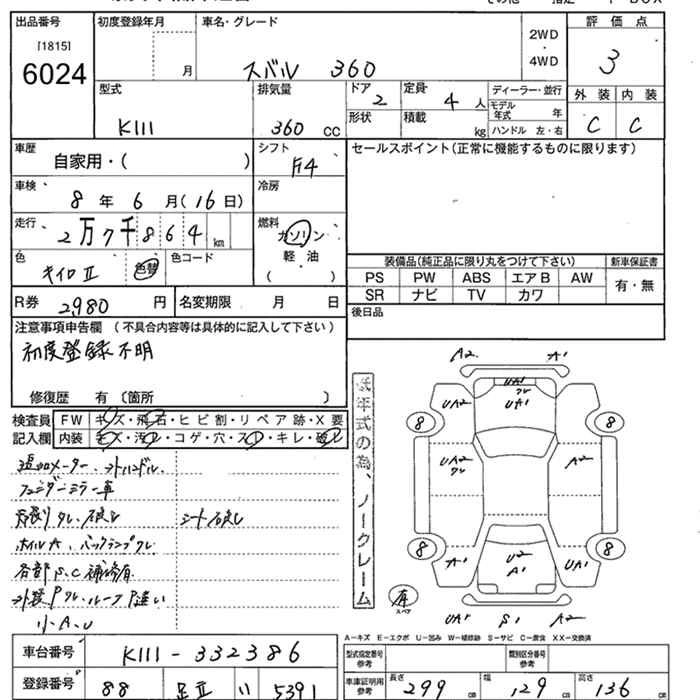 出品番号 初度登録年月 車名・グレード 評価点
[1815]
6024 月 スバル 360 2WD・4WD 3
型式 排気量 ドア 定員 ディーラー・並行 外装 内装
K111 360 cc 2 4 人 モデル年式 年 C C
形状 積載 kg ハンドル 左・右
車歴 シフト セールスポイント(正常に機能するものに限ります)
自家用・( ) F4
車検 8 年 6 月(16日) 冷房
走行 2万7千864 km 燃料 ガソリン
軽油
( )
色 キイロⅡ 色替 色コード
装備品(純正品に限り丸をつけて下さい) 新車保証書
PS PW ABS エアB AW 有・無
SR ナビ TV カワ
R券 2,980 円 名変期限 月 日 後日品
注意事項申告欄 (不具合内容等は具体的に記入して下さい)
初度登録不明
修復歴 有 〔箇所 〕
検査員 FW キズ・飛石・ヒビ割・リペア跡・X要
記入欄 内装 キズ・汚レ・コゲ・穴・スレ・キレ・破レ
フェンダーミラー車
シート破レ
小A、U
低年式の為、ノークレーム
A2 A1
UA2 UA1
8 8
UA2 A2
8 8
A1 U2 A1 UA1
有 スペア
UA1 S1 A2
A-キズ E-エクボ U-凹み W-補修跡 S-サビ C-腐食 XX-交換済
車台番号 K111-332386
型式指定番号 参考 類別区分番号 参考
登録番号 88 足立 い 5391
車庫証明用 参考 長さ 299 cm 幅 129 cm 高さ 136 cm